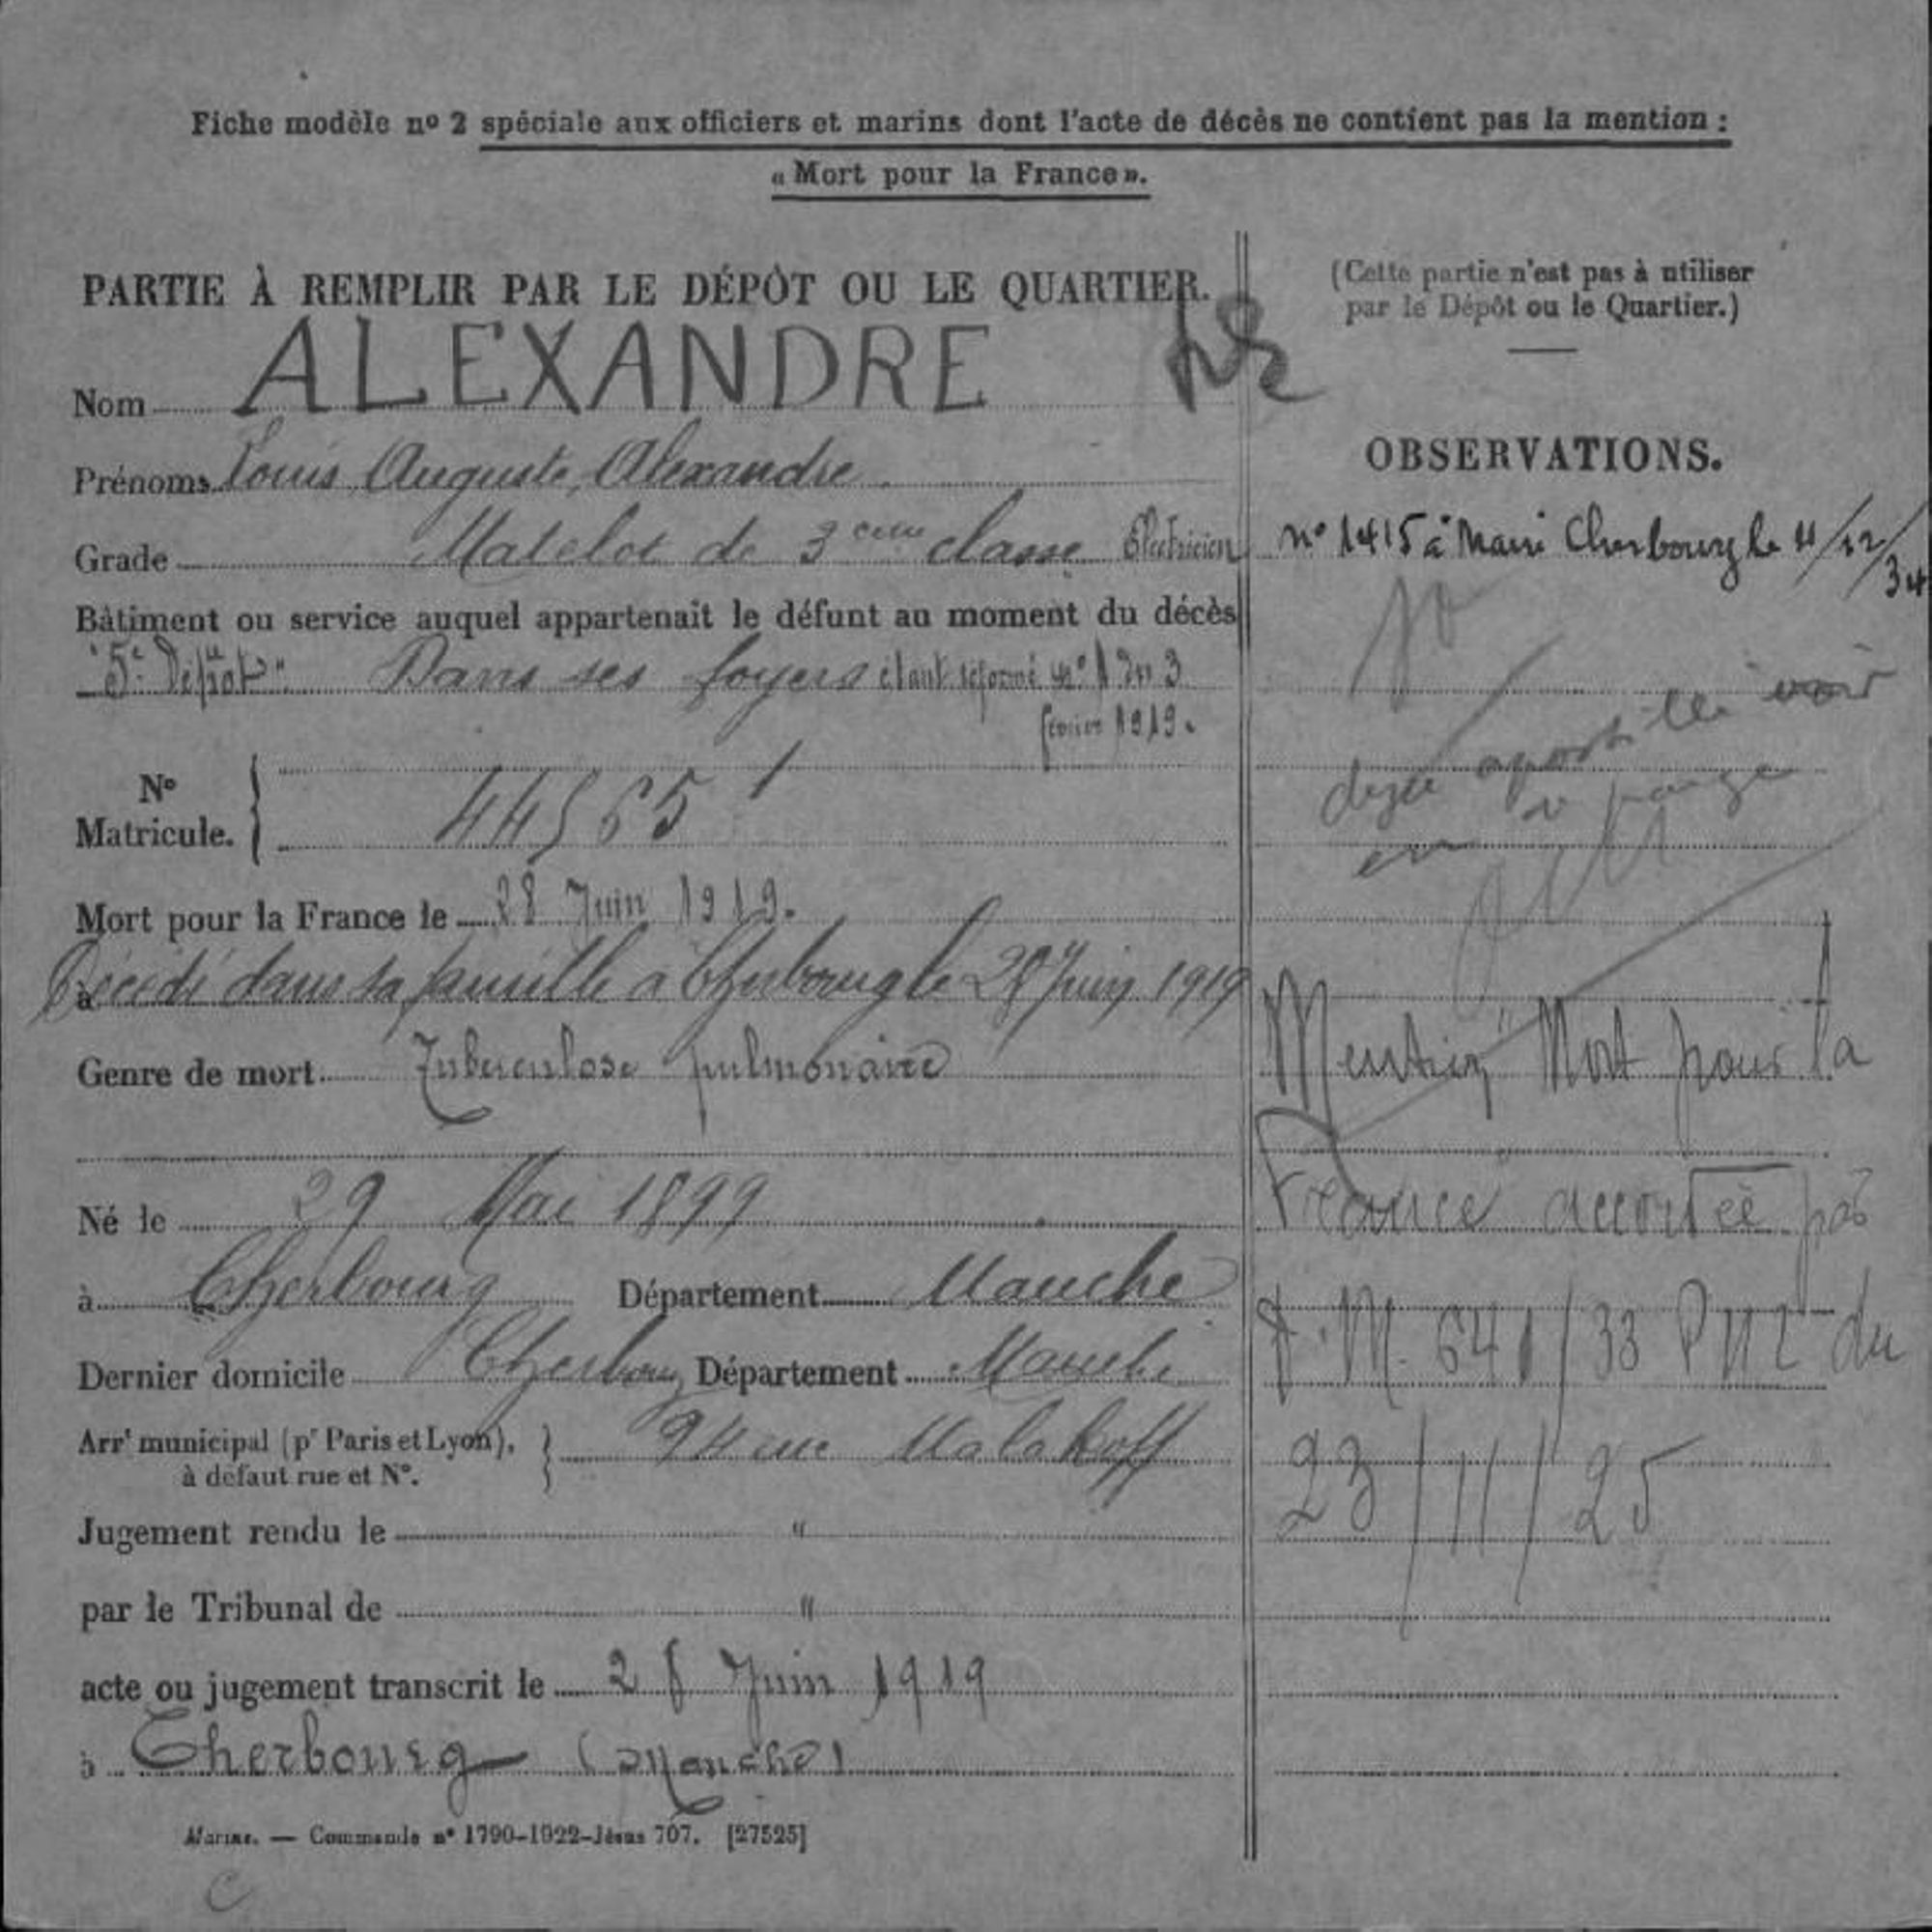 Fiche modèle nº 2 spéciale aux officiers et marins dont l'acte de décès ne contient pas la mention :
« Mort pour la France ».
PARTIE À REMPLIR PAR LE DÉPÔT OU LE QUARTIER.
Nom ALEXANDRE
Prénoms Louis, Auguste, Alexandre.
Grade Matelot de 3eme classe Electricien
Bâtiment ou service auquel appartenait le défunt au moment du décès
"5e Dépôt" Dans ses foyers étant réformé nº 1 du 3
février 1919.
Nº
Matricule. } 44565 1
Mort pour la France le 28 Juin 1919.
à Décédé dans sa famille à Cherbourg le 28 Juin 1919
Genre de mort Tuberculose pulmonaire
Né le 29 Mai 1899
à Cherbourg Département Manche
Dernier domicile Cherbourg Département Manche
Arrt municipal (pr Paris et Lyon), à défaut rue et Nº. } 94 rue Malakoff
Jugement rendu le "
par le Tribunal de "
acte ou jugement transcrit le 28 Juin 1919
à Cherbourg (Manche)
Marine. — Commande nº 1790-1922-Jésus 707. [27525]
(Cette partie n'est pas à utiliser
par le Dépôt ou le Quartier.)
OBSERVATIONS.
nº 1415 à Maire Cherbourg le 11/12/34
voir
Mention "Mort pour la
France accordée par
D.M. 641/33 du
23/11/25